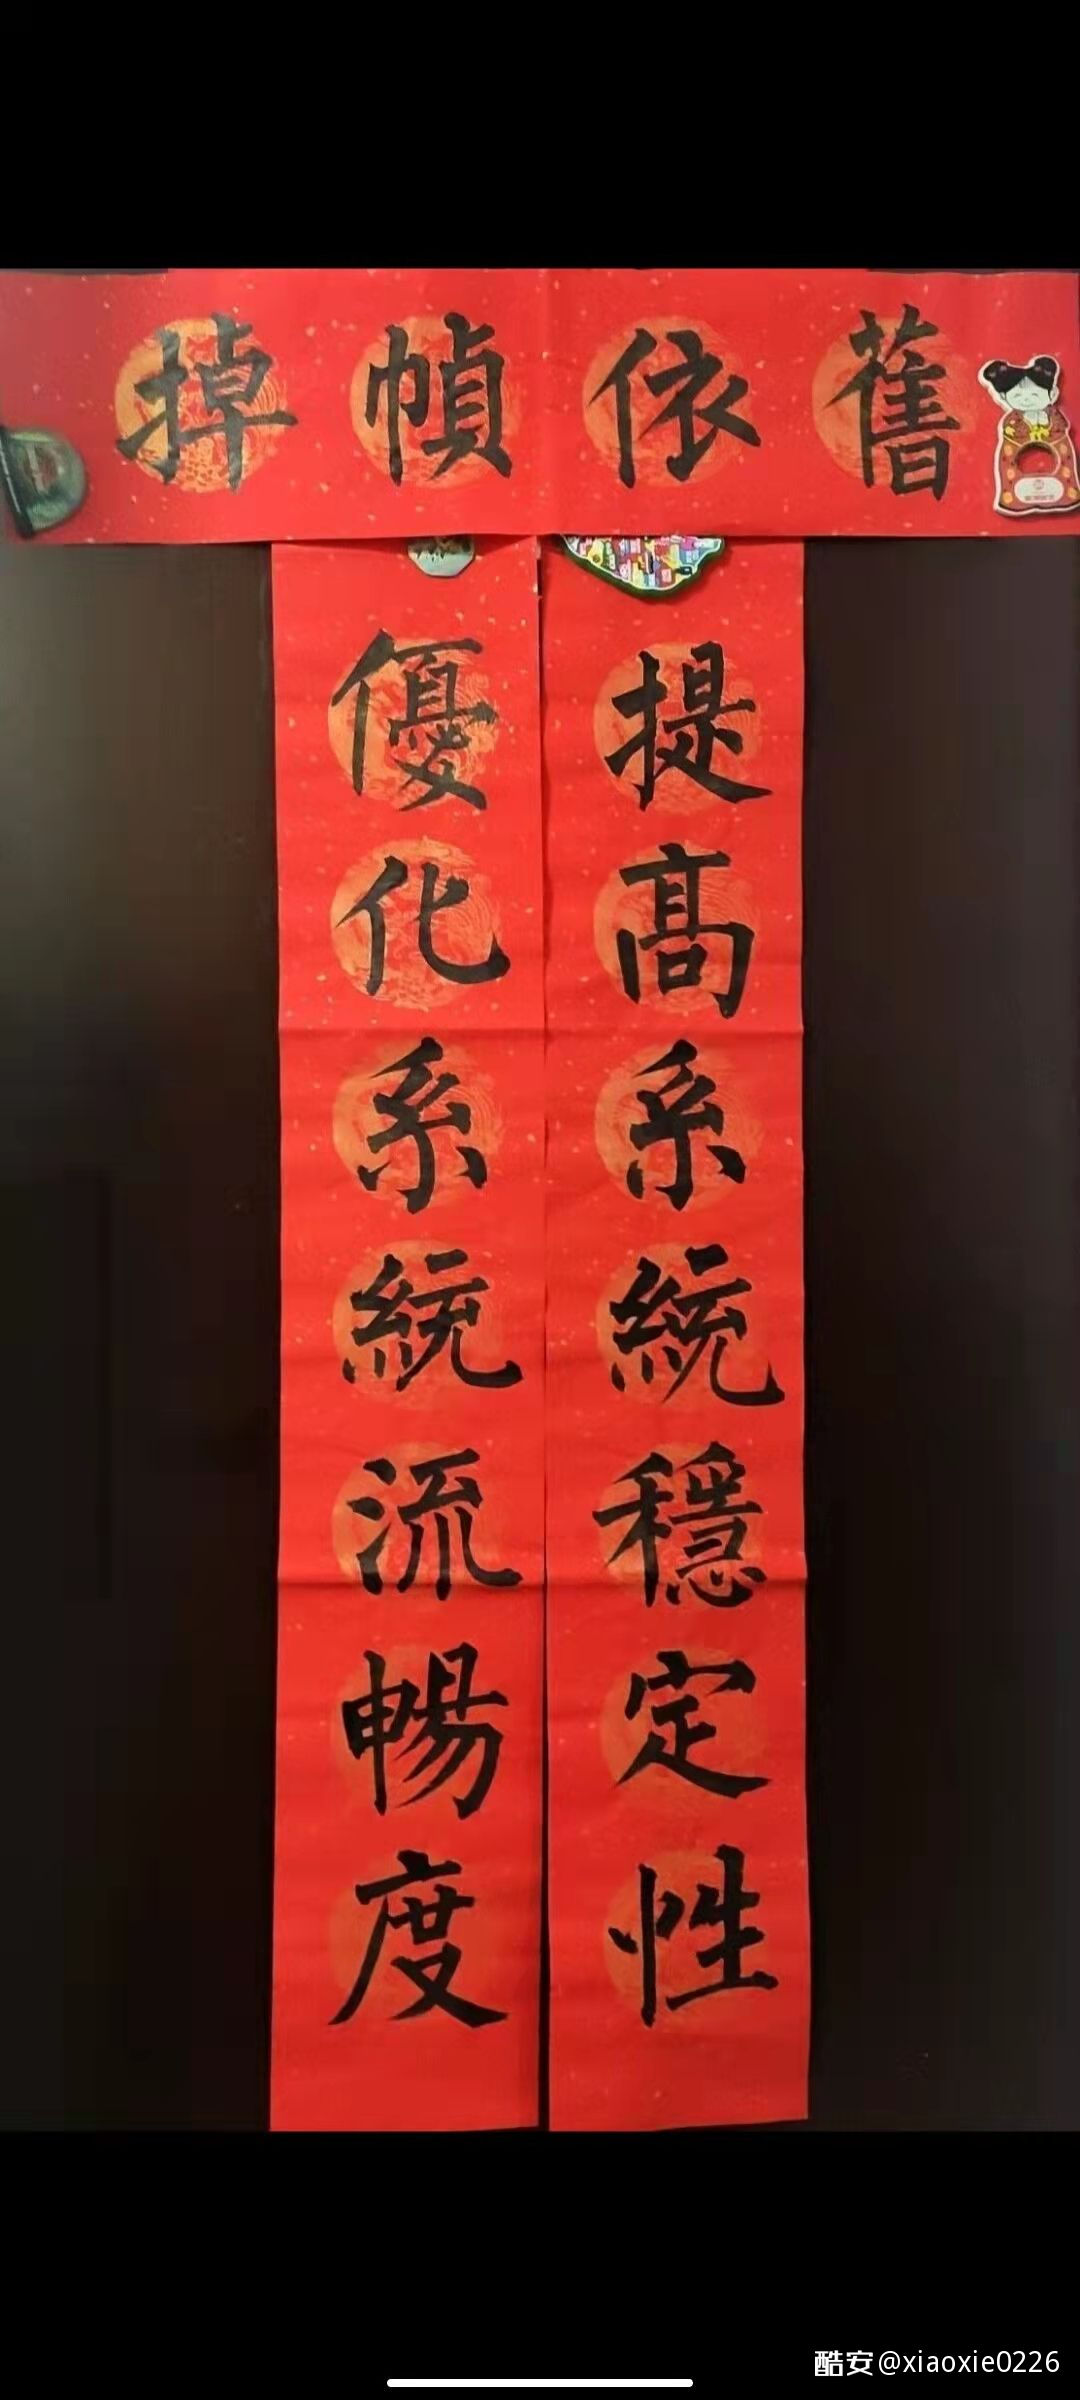 掉幀依舊
提高系統穩定性
優化系統流暢度
酷安@xiaoxie0226